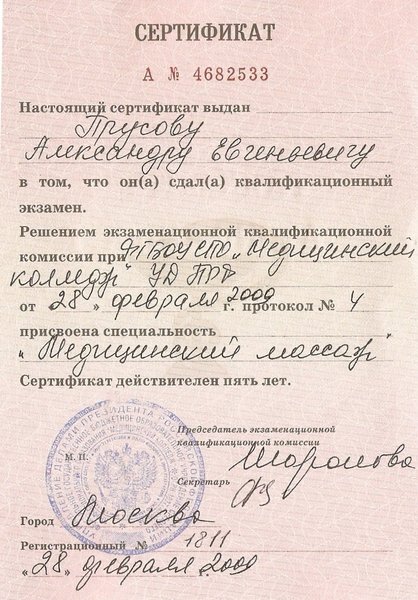 СЕРТИФИКАТ
А № 4682533
Настоящий сертификат выдан
Прусову
Александру Евгеньевичу
в том, что он(а) сдал(а) квалификационный
экзамен.
Решением экзаменационной квалификационной
комиссии при ФГБОУ СПО „Медицинский
колледж" УД ПРФ
от „ 28 " февраля 2009 г. протокол № 4
присвоена специальность
„Медицинский массаж"
Сертификат действителен пять лет.
Председатель экзаменационной
квалификационной комиссии
М. П.
Секретарь
Город Москва
Регистрационный № 1811
„28" февраля 2009